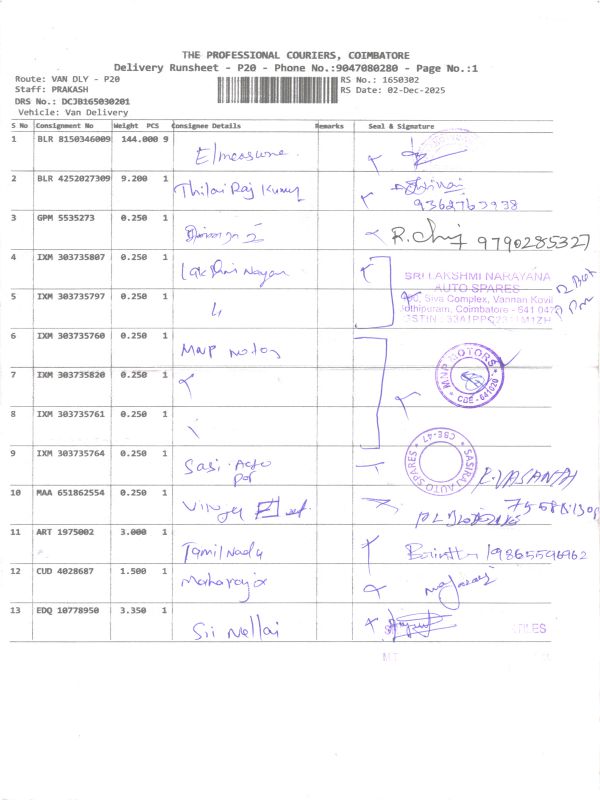 THE PROFESSIONAL COURIERS, COIMBATORE
Delivery Runsheet - P20 - Phone No.:9047080280 - Page No.:1
Route: VAN DLY - P20
Staff: PRAKASH
DRS No.: DCJB165030201
Vehicle: Van Delivery
RS No.: 1650302
RS Date: 02-Dec-2025
S No Consignment No Weight PCS Consignee Details Remarks Seal & Signature
1 BLR 8150346009 144.000 9
2 BLR 4252027309 9.200 1 Thilai Raj Kumar
9362763938
3 GPM 5535273 0.250 1 R. 9790285327
4 IXM 303735807 0.250 1 Lakshmi Narayan
SRI LAKSHMI NARAYANA
AUTO SPARES
Siva Complex, Vannan Kovil
Jothipuram, Coimbatore - 641 047
5 IXM 303735797 0.250 1
6 IXM 303735760 0.250 1 MNP Motos
MNP MOTORS
CBE - 641020
7 IXM 303735820 0.250 1
8 IXM 303735761 0.250 1
9 IXM 303735764 0.250 1 Sasi Auto
SASIRAJ AUTO SPARES
CBE-47
R. VASANTH
10 MAA 651862554 0.250 1
11 ART 1975002 3.000 1 Tamil Nadu
9865596962
12 CUD 4028687 1.500 1 Maharaja
13 EDQ 10778950 3.350 1 Sri Nellai